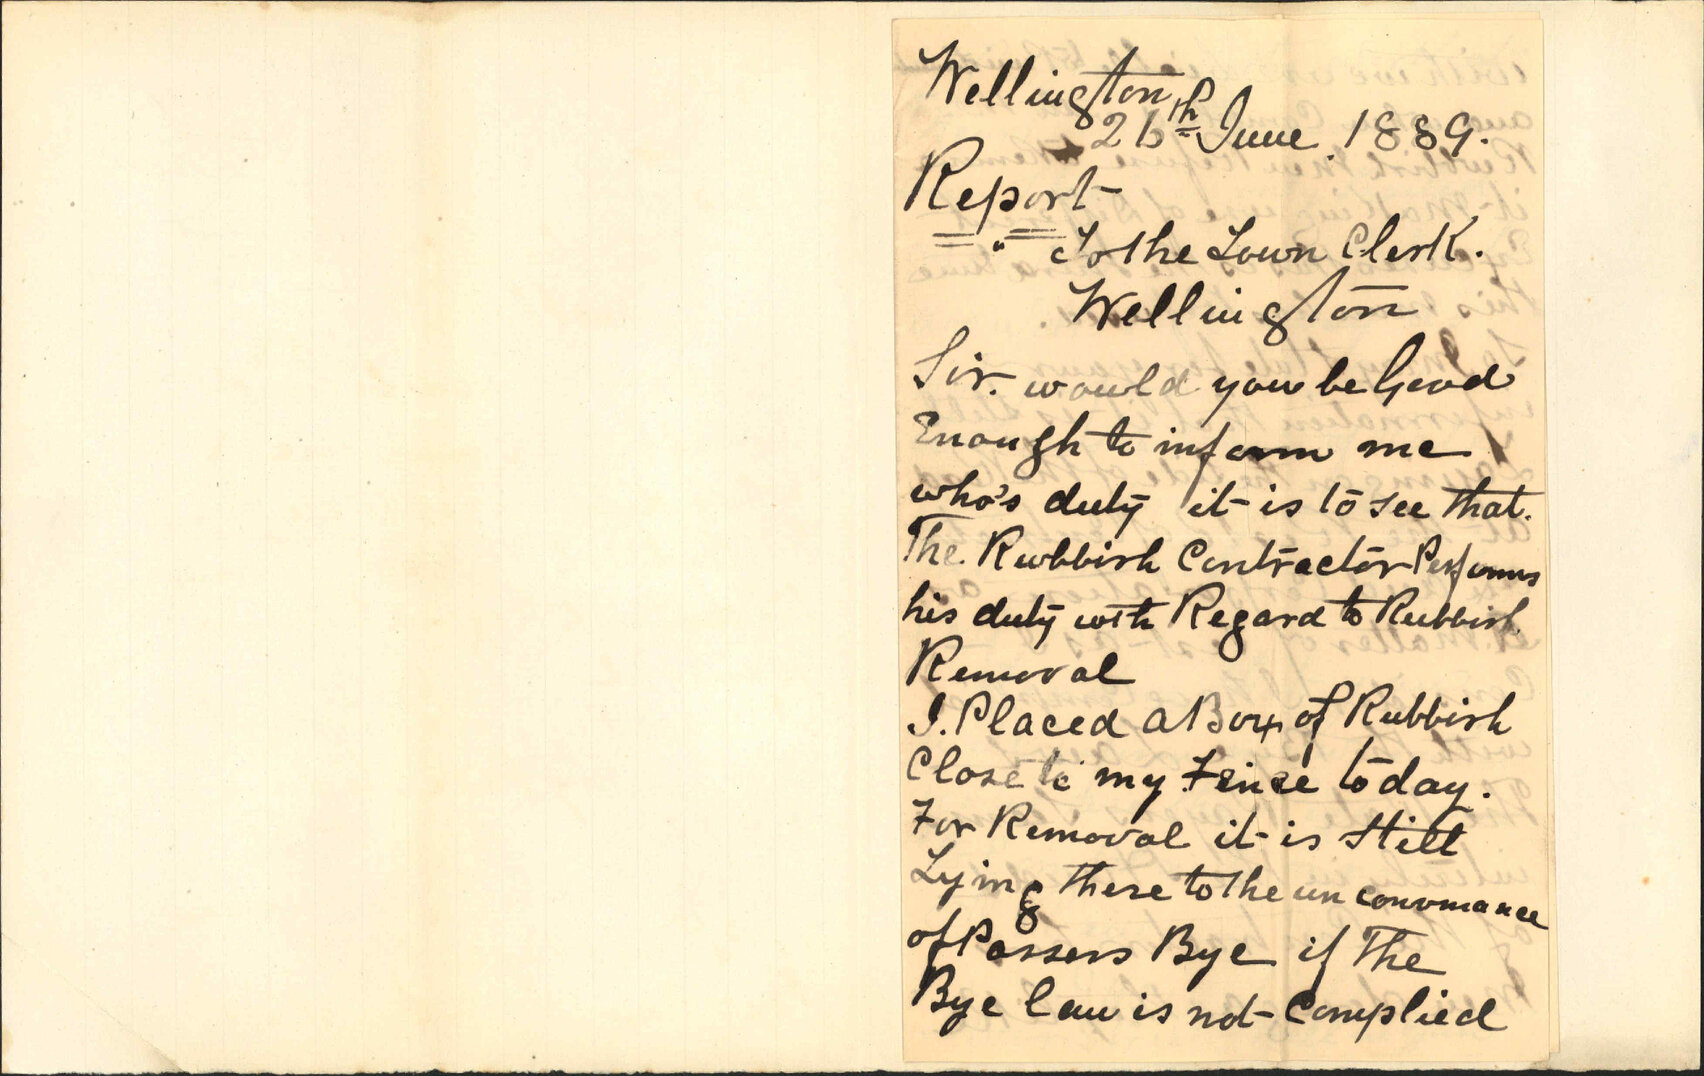 Wellington
26th June. 1889.
Report
To the Town Clerk.
Wellington
Sir. would you be Good
Enough to inform me
who's duty it is to see that.
The. Rubbish Contractor Performs
his duty with Regard to Rubbish
Removal
I. Placed a Box of Rubbish
Close to my Fence today.
For Removal it is still
Lying there to the un convinance
of Passers Bye if The
Bye law is not Complied